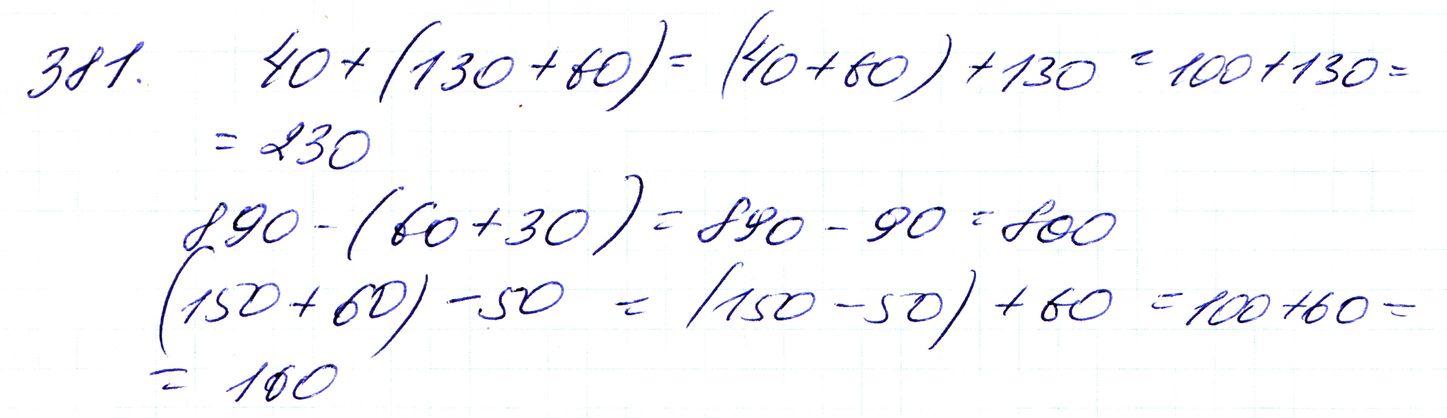 381. 40+(130+60)= (40+60)+130 = 100+130=
= 230
890-(60+30)= 890-90=800
(150+60)-50 = (150-50)+60 = 100+60=
= 160